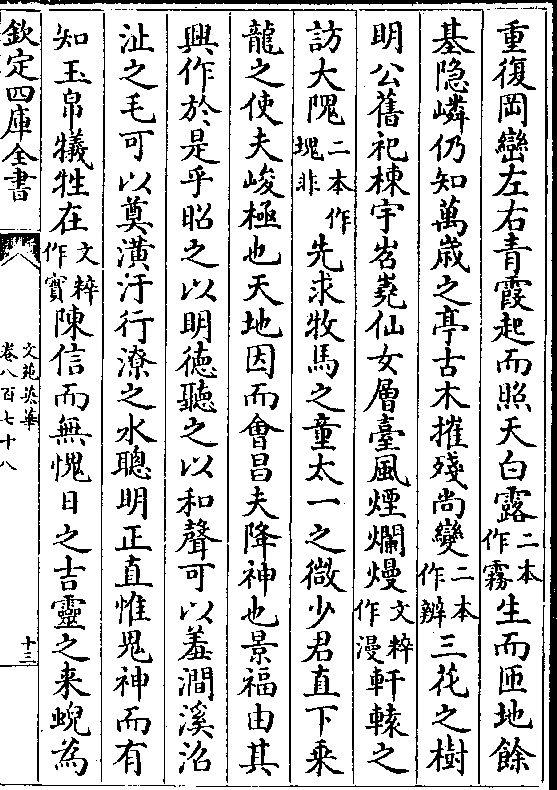 重復岡巒左右青霞起而照天白露二本作霧生而匝地餘
基隐嶙仍知萬歳之亭古木摧殘尚變二本作辨三花之樹
明公舊祀棟宇岧嶤仙女層臺風煙爛熳文粹作漫軒轅之
訪大隗二本作塊非先求牧馬之童太一之微少君直下乘
龍之使夫峻極也天地因而會昌夫降神也景福由其
興作於是乎昭之以明徳聽之以和聲可以羞澗溪沼
沚之毛可以奠潢汙行潦之水聰明正直惟鬼神而有
知玉帛犧牲在文粹作實陳信而無愧日之吉靈之来蜺為
欽定四庫全書
文苑英華
卷八百七十八
十三